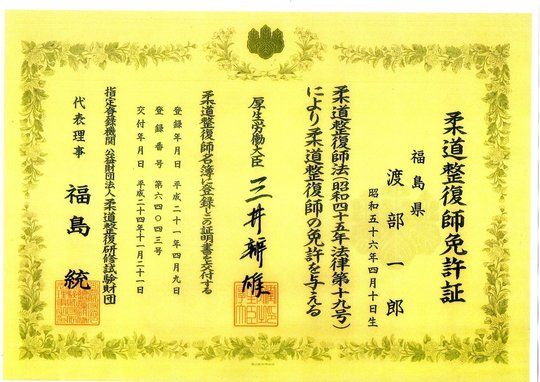 柔道整復師免許証
福島県
渡部一郎
昭和五十六年四月十日生
柔道整復師法(昭和四十五年法律第十九号)
により柔道整復師の免許を与える
厚生労働大臣 三井辨雄
柔道整復師名簿に登録しこの証明書を交付する
登録年月日 平成二十一年四月九日
登録番号 第六四〇四三号
交付年月日 平成二十四年十一月二十一日
指定登録機関 公益財団法人柔道整復研修試験財団
代表理事 福島統